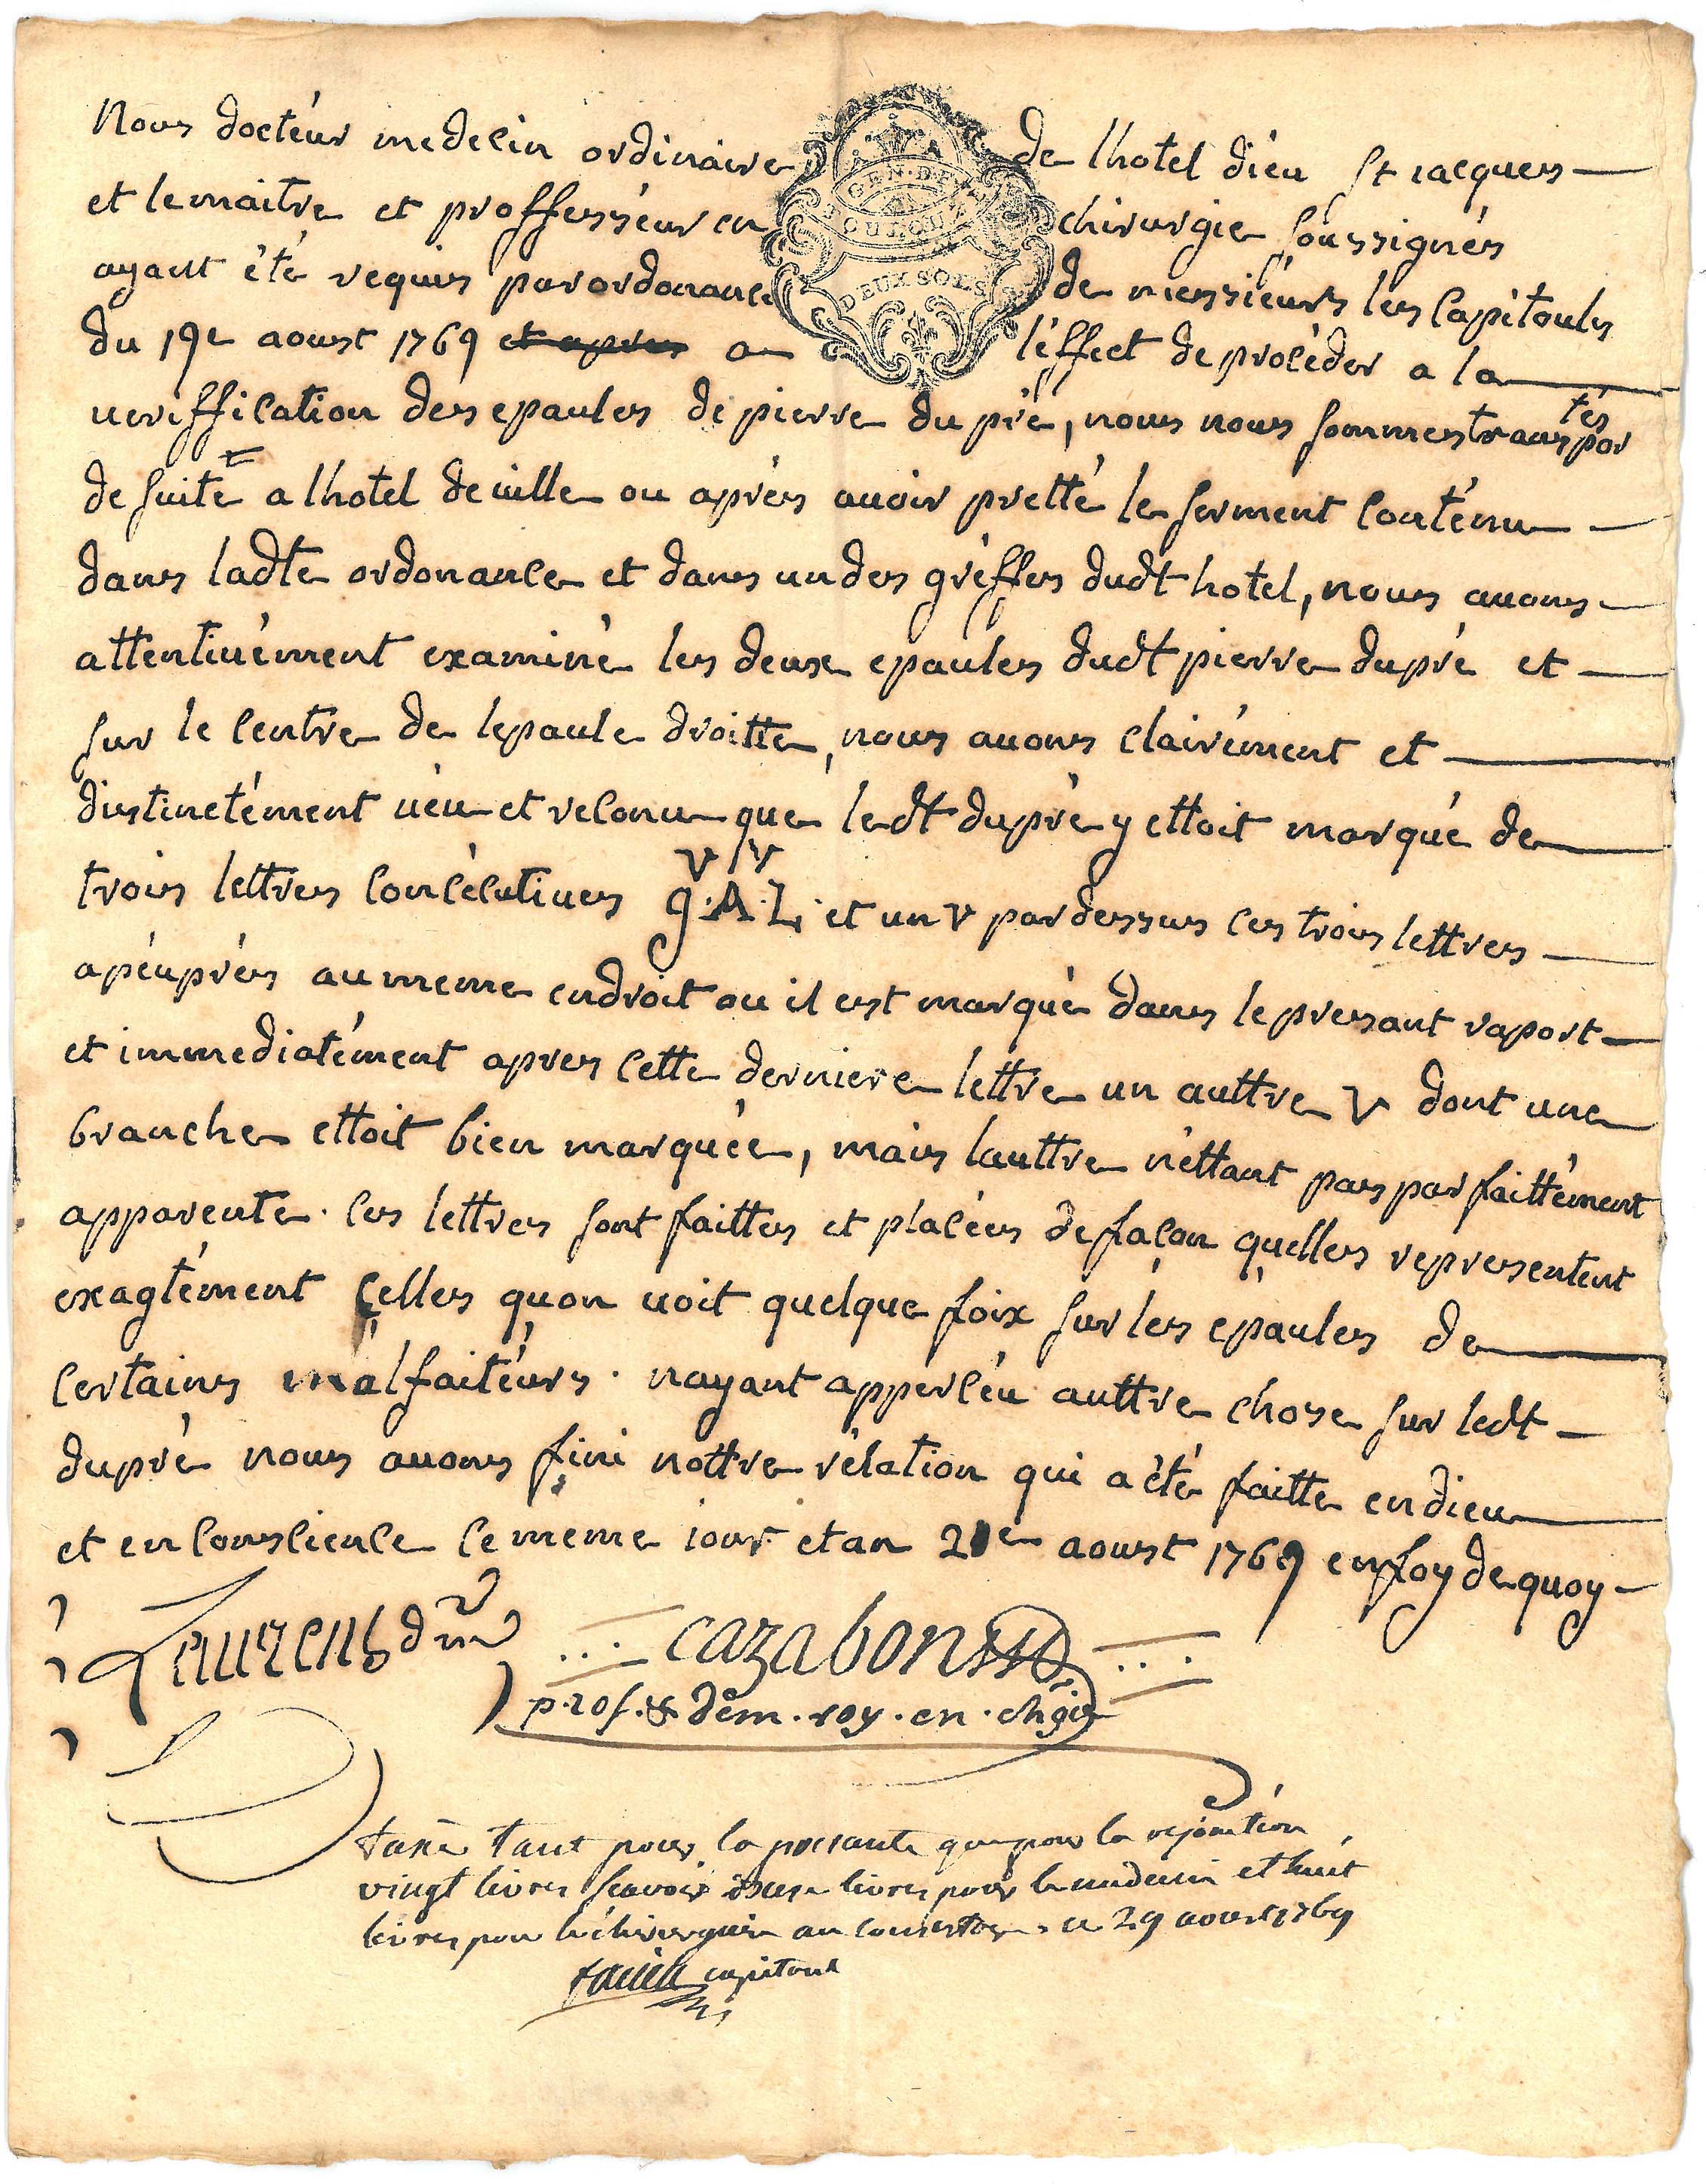 Nous docteur medecin ordinaire de lhotel dieu St iacques
et le maitre et proffesseur en chirurgie soussignés
ayant été requis par ordonance de messieurs les capitouls
du 19e aoust 1769 et apres a l'effect de procéder a la
veriffication des epaules de pierre du pré, nous nous sommes transportés
de suite a lhotel de ville ou après avoir pretté le serment contenu
dans ladte ordonance et dans un des greffes dudt hotel, nous avons
attentivement examiné les deux epaules dudt pierre dupré et
sur le centre de lepaule droitte, nous avons clairement et
distinctement veu et reconu que ledt dupré y ettoit marqué de
V V
trois lettres concécutives G.A.L. et un V par dessus ces trois lettres
apeuprès au meme endroit ou il est marqué dans le presant raport
et immediatement apres cette derniere lettre un auttre V dont une
branche ettoit bien marquée, mais lauttre n'ettant pas parfaittement
apparente. ces lettres sont faittes et placées de façon quelles representent
exagtement celles quon voit quelque foix sur les epaules de
certains malfaiteurs. nayant apperceu auttre chose sur ledt
dupré nous avons fini nottre rélation qui a été faitte en dieu
et en conscience ce meme iour et an 21e aoust 1769 en foy de quoy
Laurens dm
cazabon
prof. & dem. roy. en. chgie
GEN. DE
TOULOUSE
DEUX SOLS
taxé tant pour la presante que pour la
vingt livres scavoir douze livres pour le medecin et huit
livres pour le chirurgien au consistoire ce 29 aoust 1769
capitoul